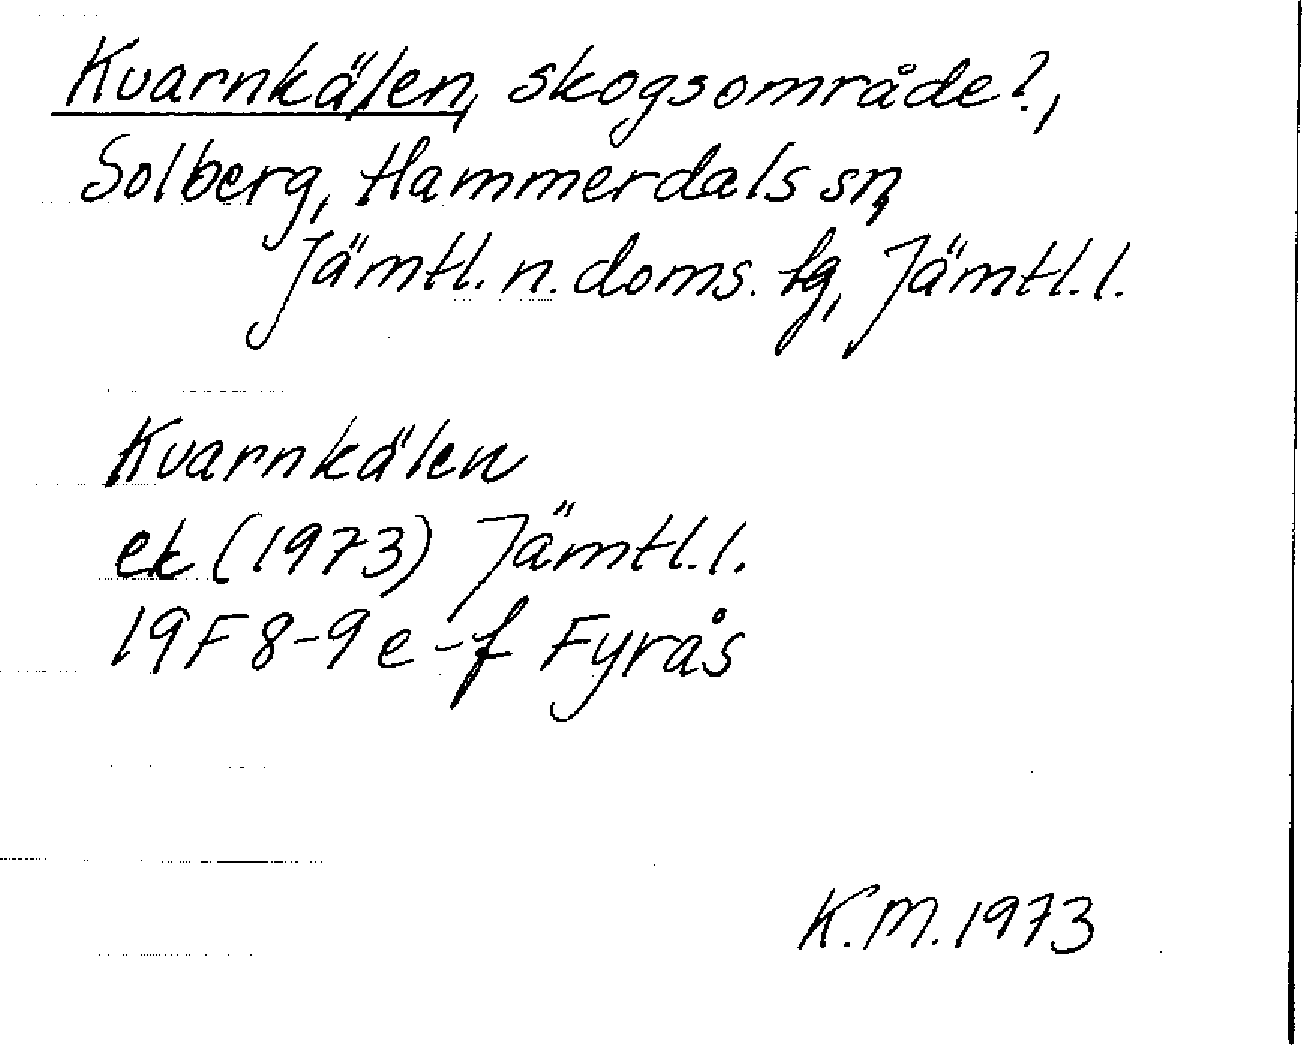 Kvarnkälen, skogsområde?,
Solberg, Hammerdals sn,
Jämtl. n. doms. tg, Jämtl. l.
Kvarnkälen
ek (1973) Jämtl. l.
19F 8-9 e-f Fyrås
K.M. 1973